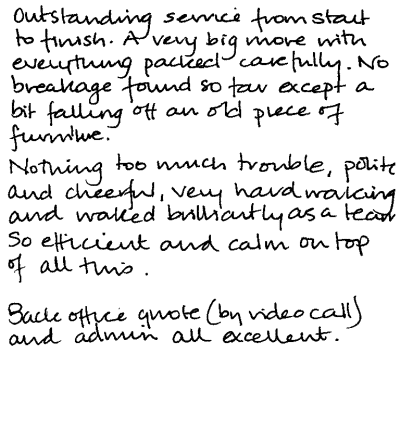 Outstanding service from start
to finish. A very big move with
everything packed carefully. No
breakage found so far except a
bit falling off an old piece of
furniture.
Nothing too much trouble, polite
and cheerful, very hard working
and worked brilliantly as a team
So efficient and calm on top
of all this.
Back office quote (by video call)
and admin all excellent.